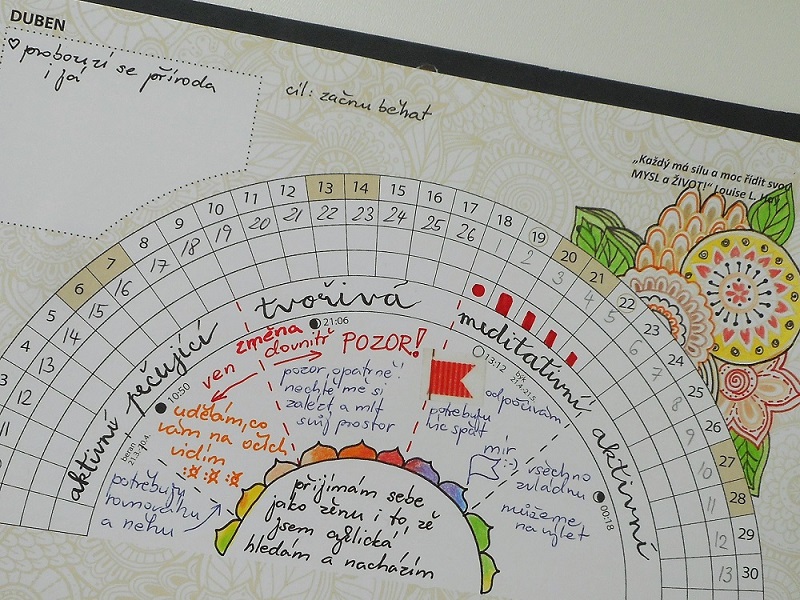 DUBEN
♡ probouzí se příroda
i já
cíl: začnu běhat
„Každý má sílu a moc řídit svou
MYSL a ŽIVOT!“ Louise L. Hay
5 6 7 8 9 10 11 12 13 14 15 16 17 18 19 20 21 22 23 24 25 26 27 28 29 30
11 12 13 14 15 16 17 18 19 20 21 22 23 24 25 26 1 2 3 4 5 6 7 8 9 10 11 12 13
aktivní pečující tvořivá meditativní aktivní
10:50
21:06
13:12
00:18
beran
21.3.-20.4.
býk
21.4.-21.5.
změna
ven dovnitř
POZOR!
udělám, co
vám na očích
vidím
pozor, opatrně!
nechte mě si
zalézt a mít
svůj prostor
odpočívám
potřebuji
víc spát
mír
:-) všechno
zvládnu
můžeme
na výlet
potřebuji
rovnováhu
a něhu
přijímám sebe
jako ženu i to, že
jsem cyklická
hledám a nacházím